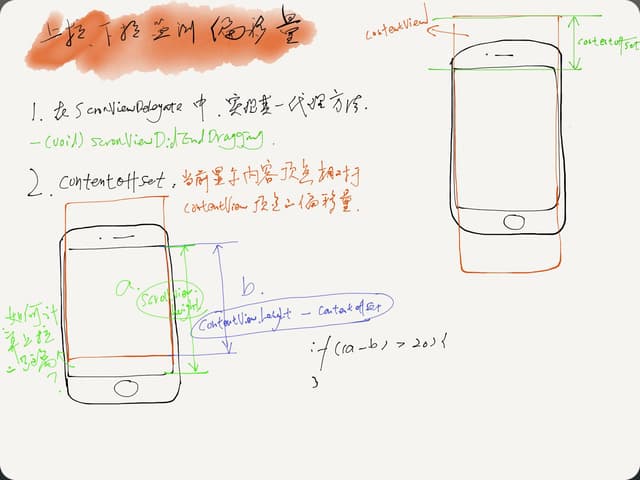 上拉、下拉监测偏移量
contentView
contentoffset
1. 在 ScrollViewDelegate 中,实现其一代理方法.
-(void) scrollViewDidEndDragging.
2. contentoffset, 当前显示内容顶点相对于
contentView 顶点之偏移量.
a.
b.
ScrollView.height
contentView.height - contentoffset
如何计
算上拉
之距离
?
if ((a-b) > 20) {
}